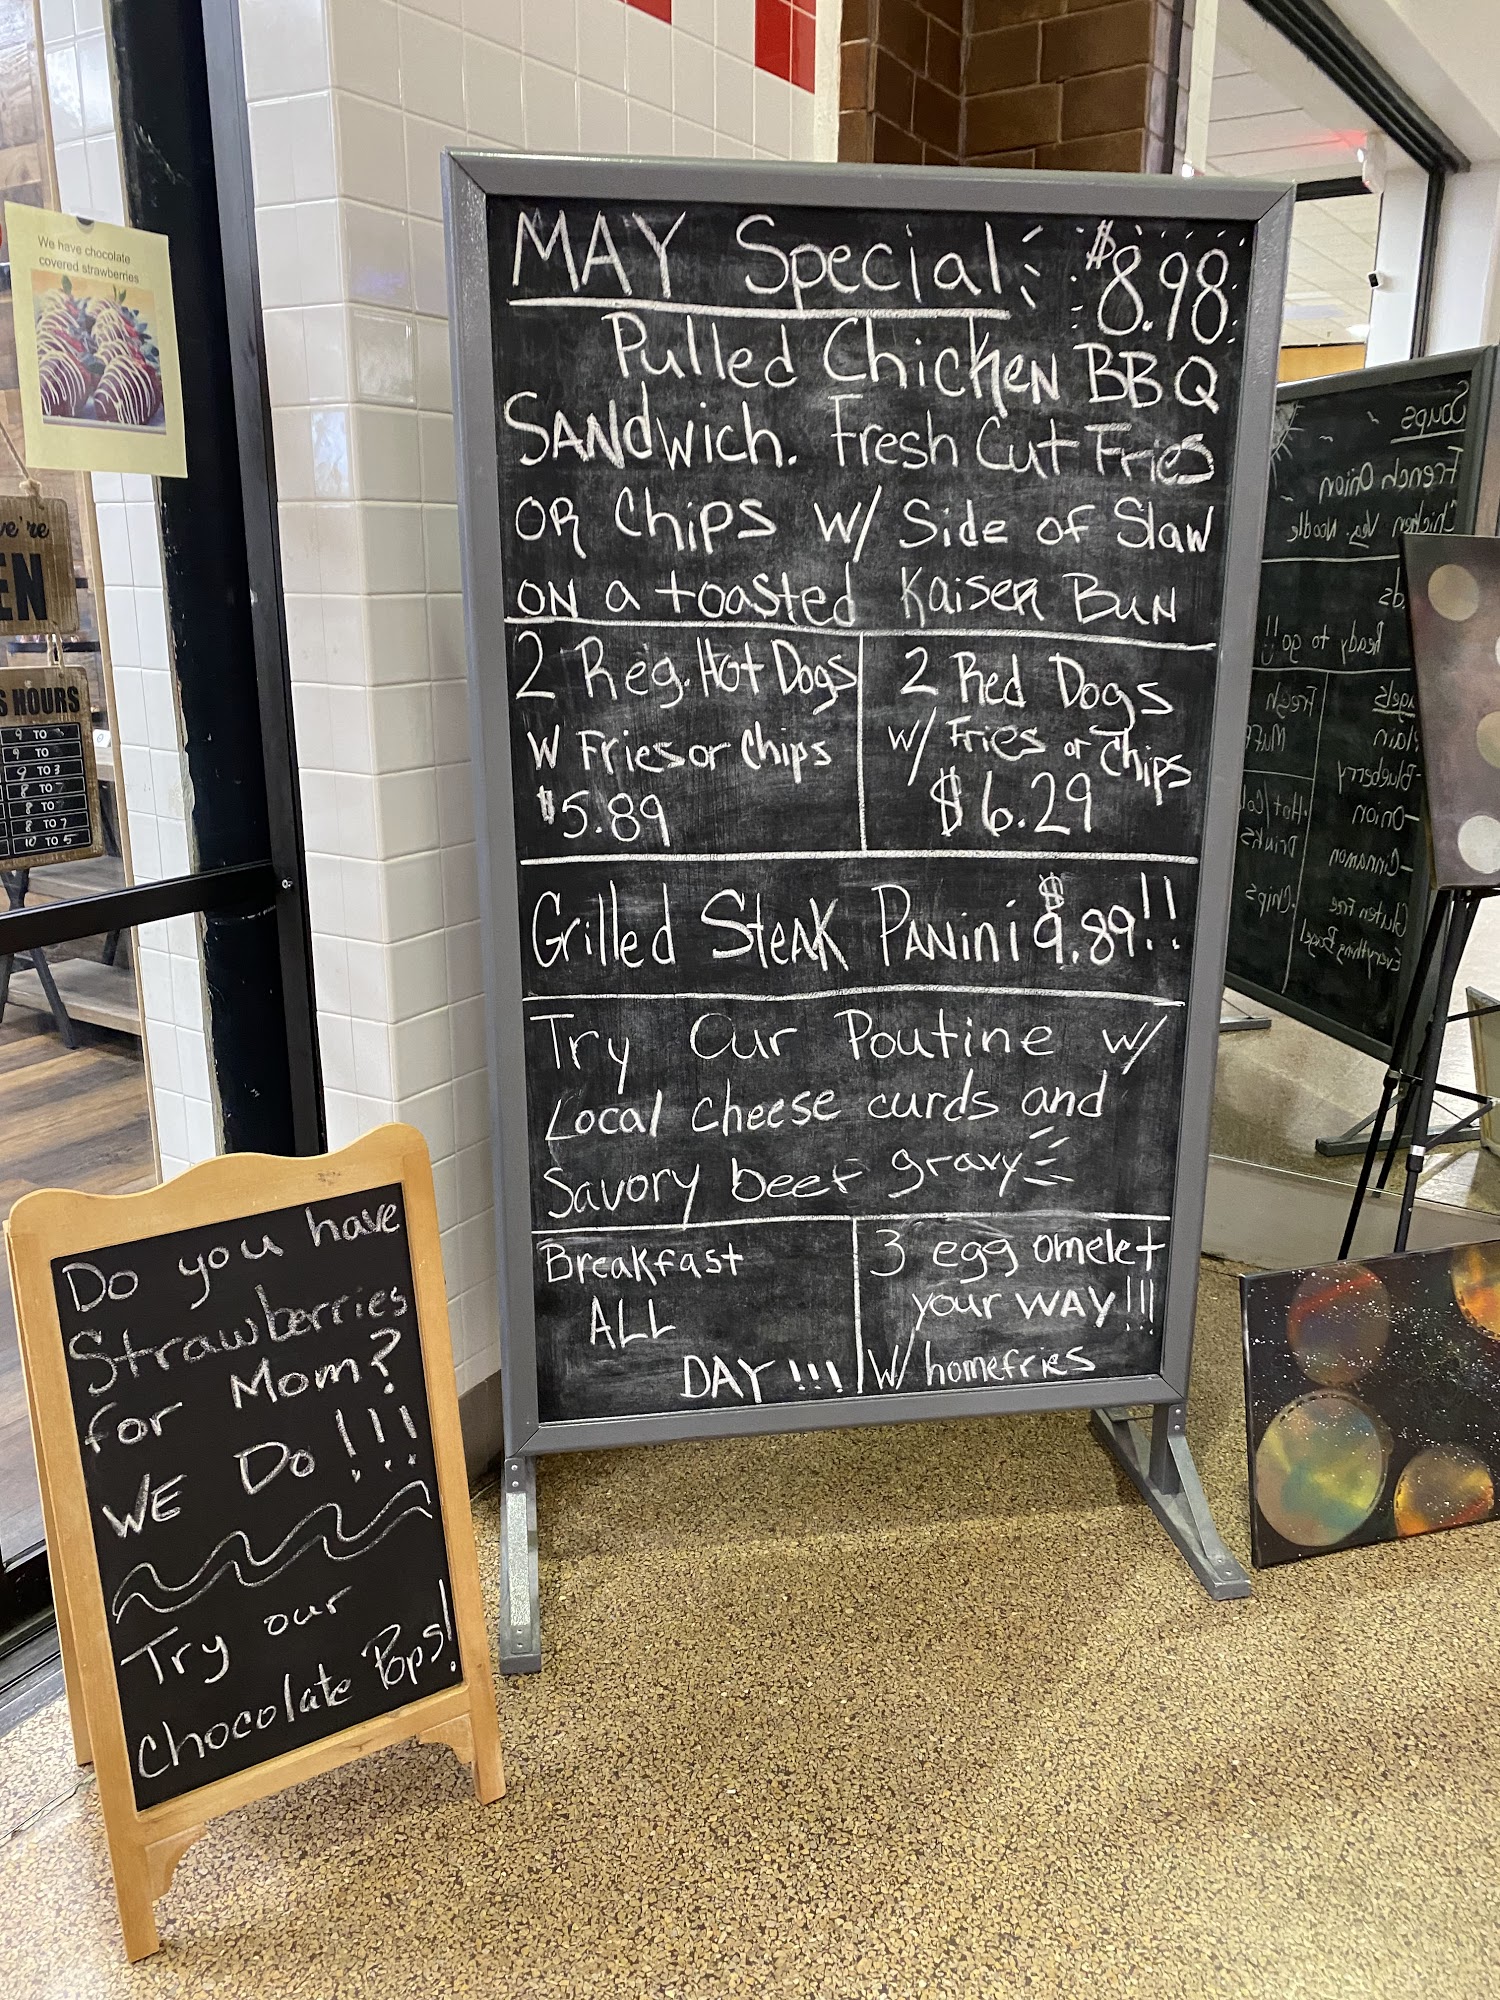 We have chocolate
covered strawberries
we're
EN
S HOURS
9 TO
9 TO
9 TO 3
8 TO
8 TO
8 TO 7
10 TO 5
MAY Special
$8.98
Pulled Chicken BBQ
SANdwich. Fresh Cut Fries
OR Chips w/ Side of Slaw
ON a toasted Kaiser BuN
2 Reg. Hot Dogs
W Fries or Chips
$5.89
2 Red Dogs
w/ Fries or Chips
$6.29
Grilled SteAK PANini $9.89!!
Try Our Poutine w/
Local cheese curds and
Savory beef gravy
Breakfast
ALL
DAY!!!
3 egg omelet
your WAY!!!
W/ homefries
Do you have
Strawberries
for Mom?
WE Do!!!
Try our
Chocolate Pops!
Soups
French Onion
Chicken Veg. Noodle
Ready to go!!
Fresh
Muff
Hot/Col
Drinks
Chips
gels
lain
Blueberry
-Onion
-Cinnamon
Gluten Free
Everything Bagel